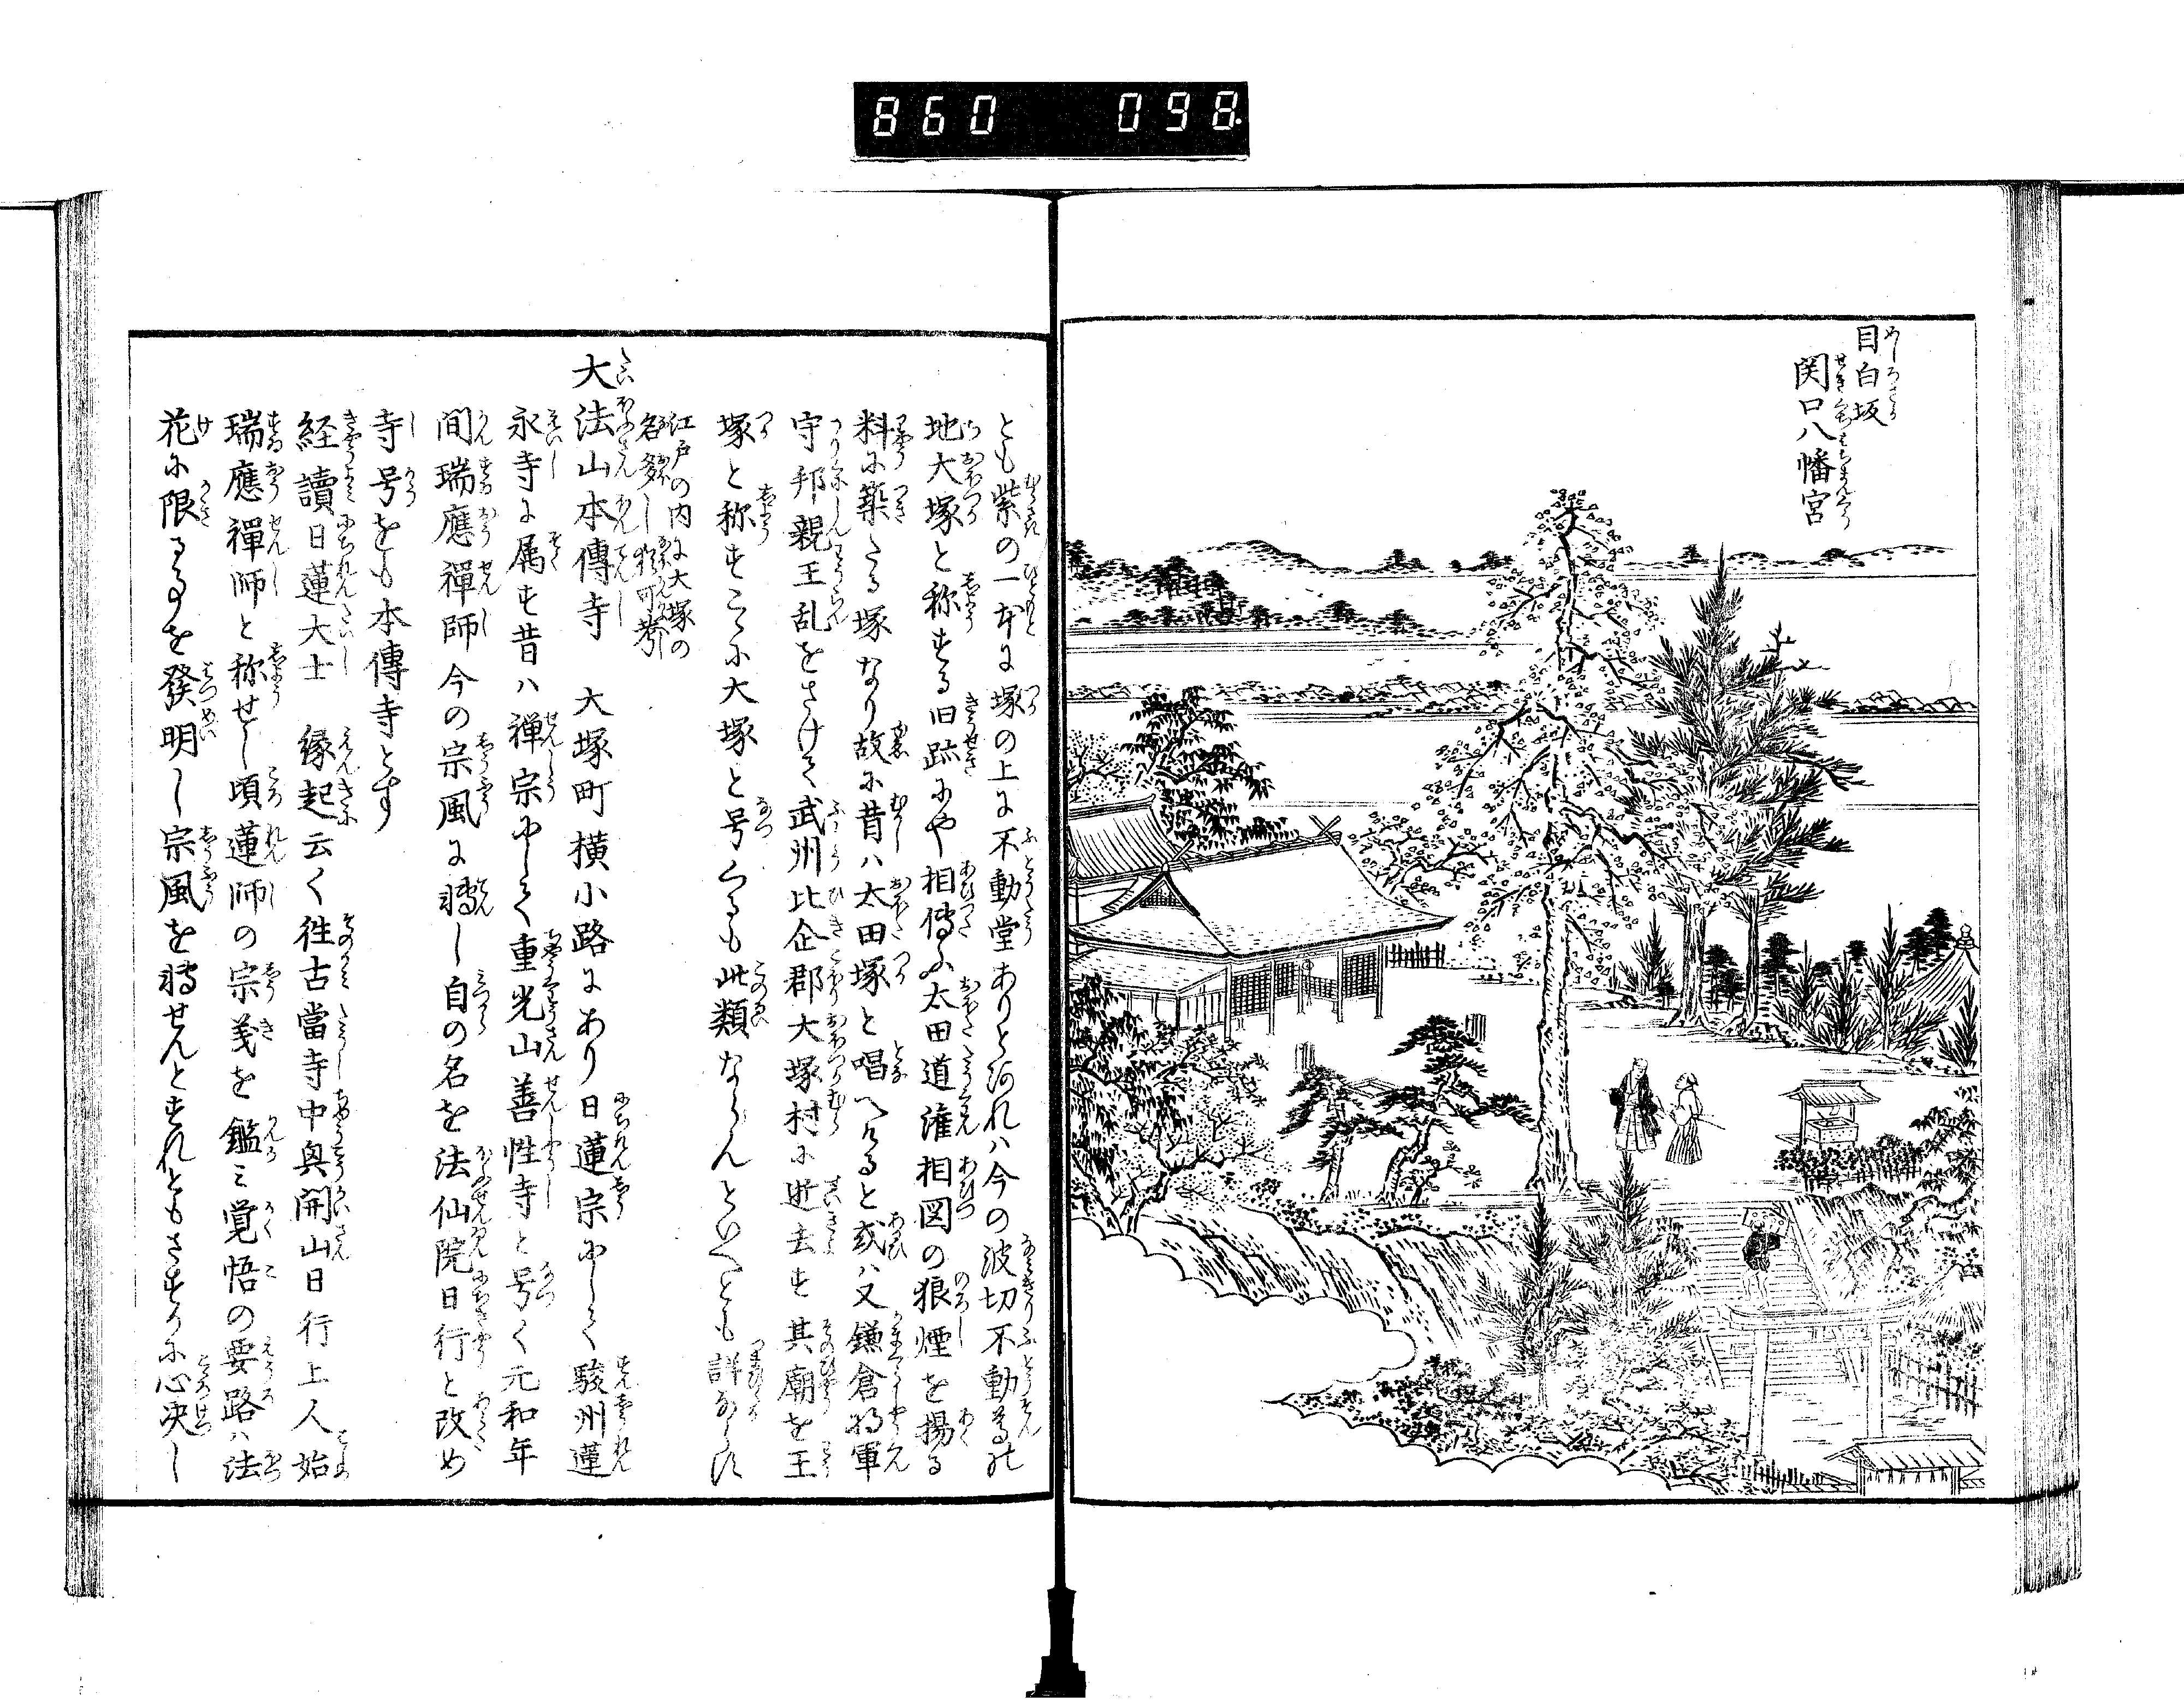 860 098
目白坂
関口八幡宮
とも紫の一本に塚の上に不動堂ありとあれハ今の波切不動尊の
地大塚と称する旧跡にや相傳ふ太田道潅相図の狼煙を揚る
料に築たる塚なり故に昔ハ太田塚と唱へけると或ハ又鎌倉将軍
守邦親王乱をさけて武州比企郡大塚村に逝去す其廟を王
塚と称すこゝに大塚と号くるも此類ならんといへとも詳ならす
江戸の内に大塚の
名多し猶可考
大法山本傳寺 大塚町横小路にあり日蓮宗にして駿州蓮
永寺に属す昔ハ禅宗にして重光山善性寺と号く元和年
間瑞應禪師今の宗風に轉し自の名を法仙院日行と改め
寺号をも本傳寺とす
経讀日蓮大士 縁起云く徃古當寺中興開山日行上人始
瑞應禪師と称せし頃蓮師の宗義を鑑ミ覚悟の要路ハ法
花に限る事を發明し宗風を轉せんとすれともさすかに心决し